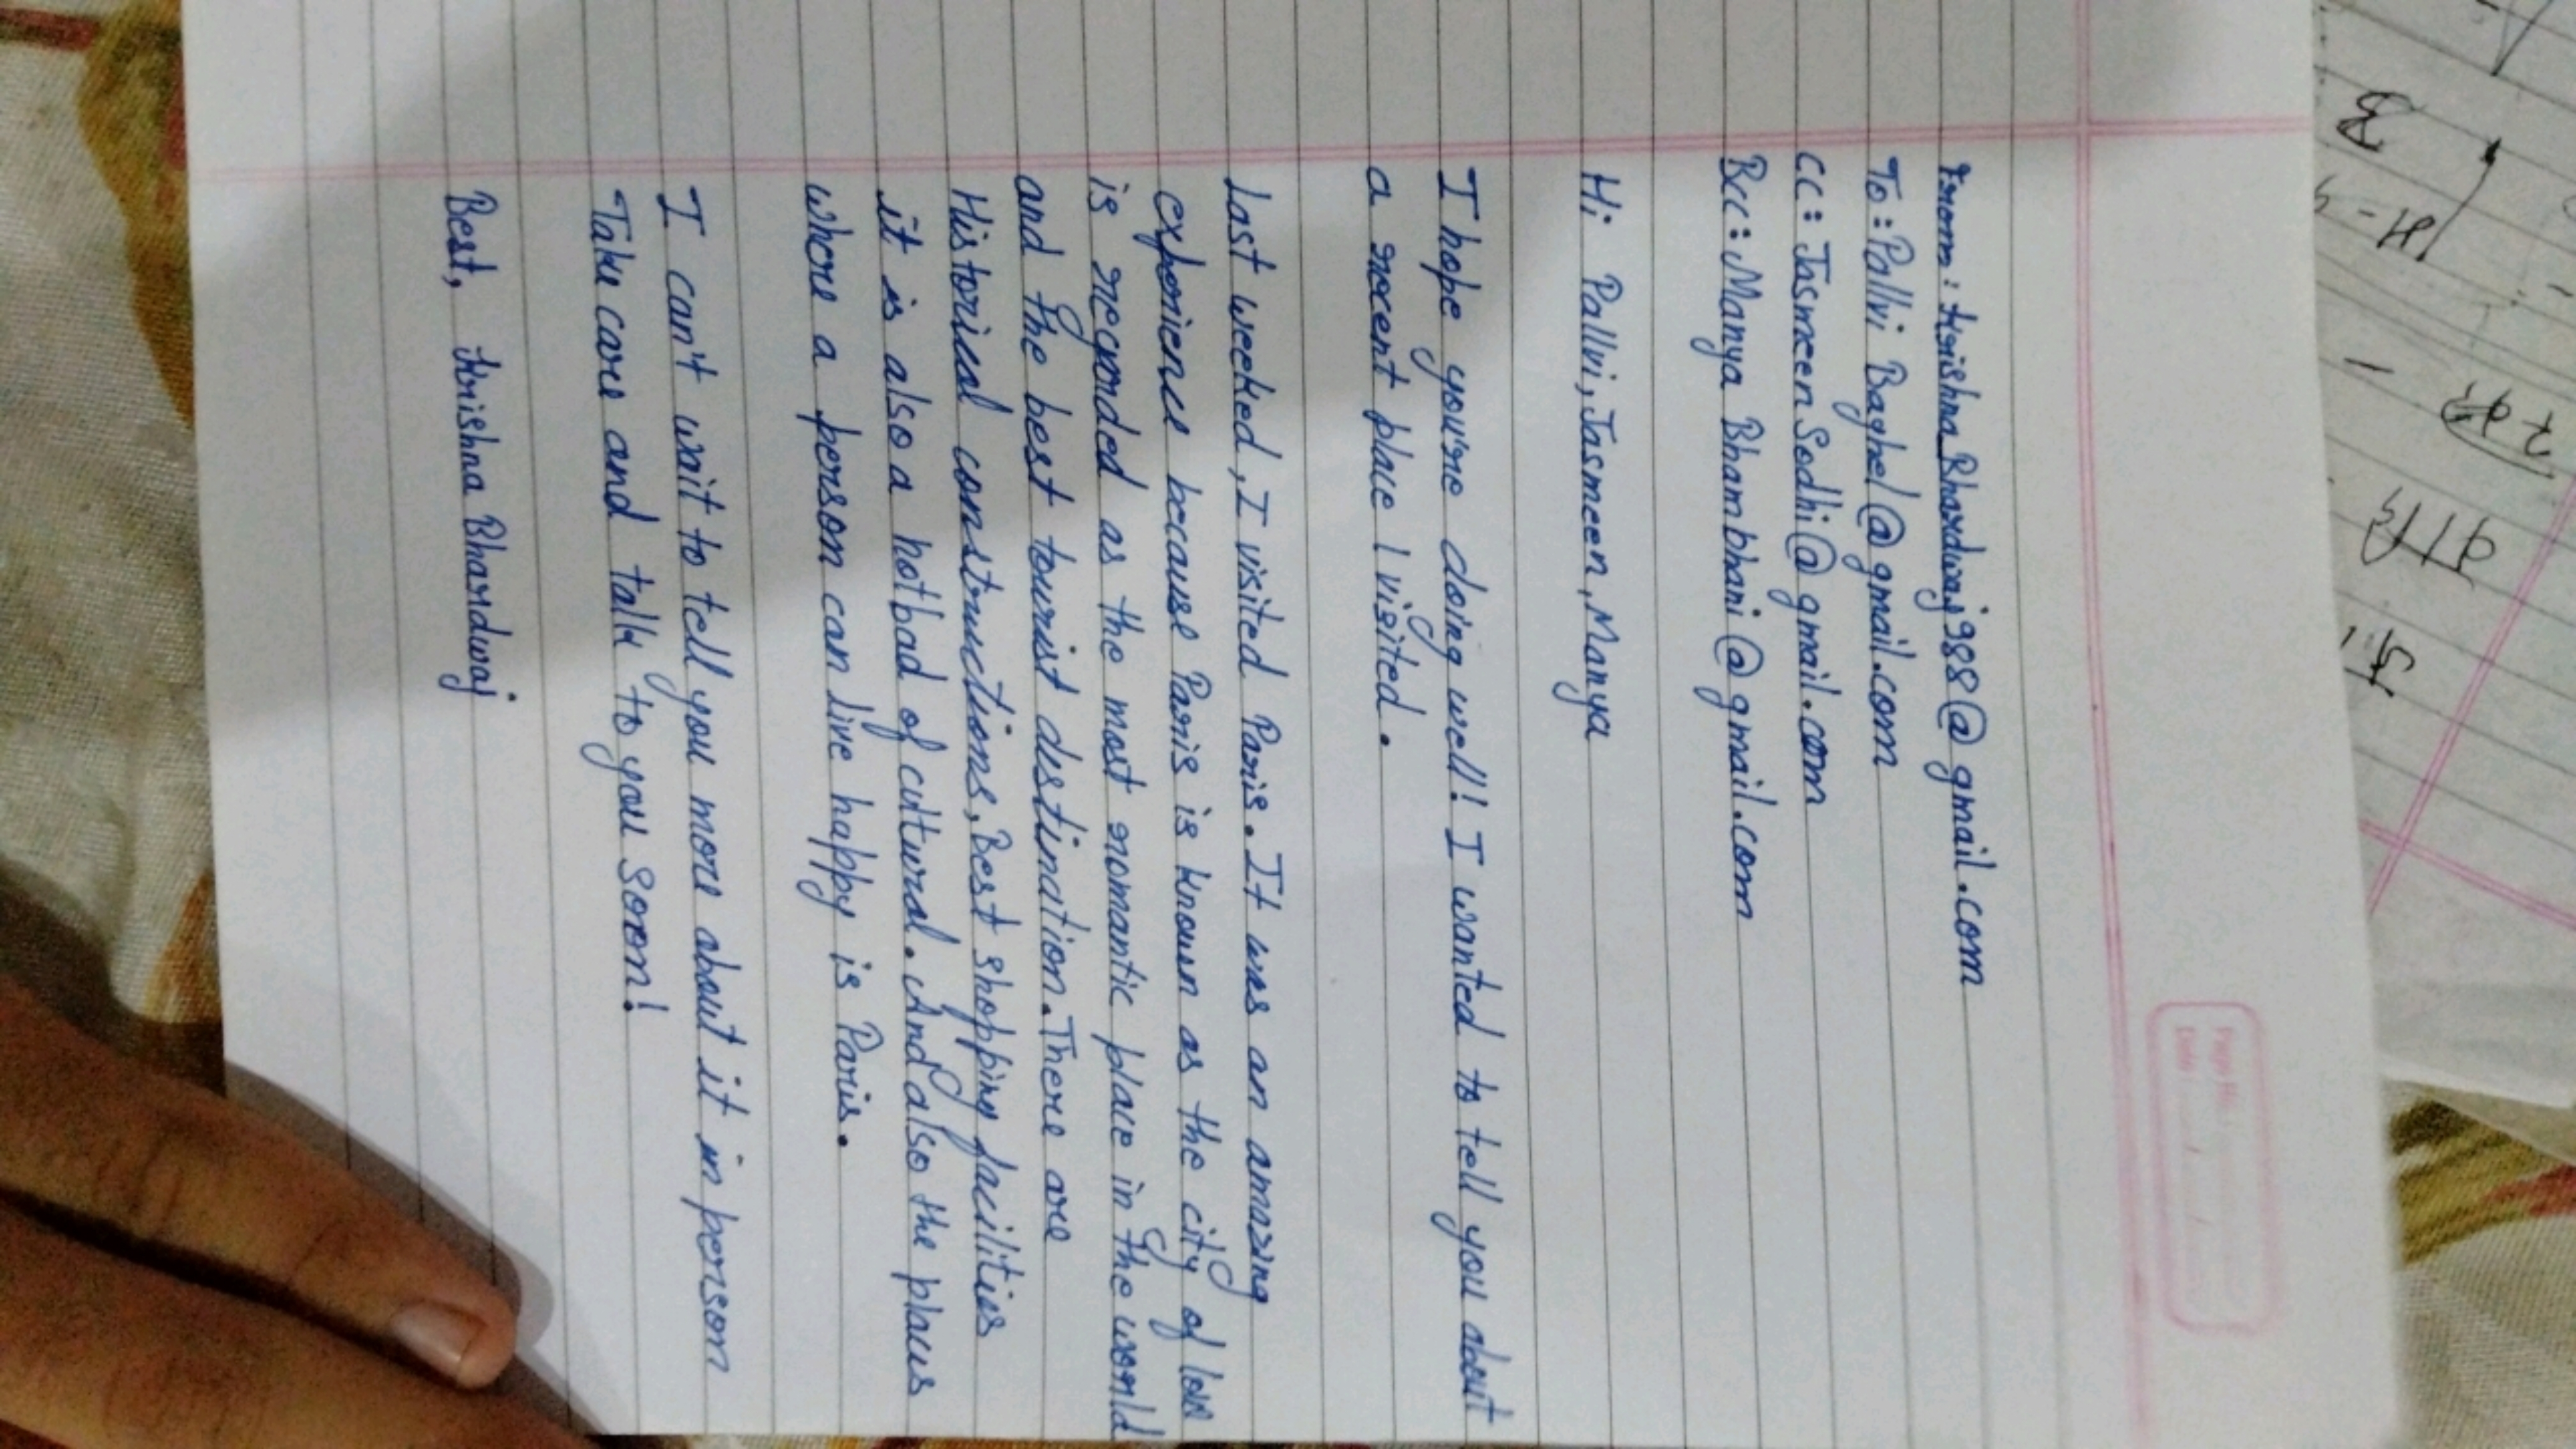 From: Krishna_Bhardwaj988@gmail.com
To: Pallvi Baghel@gmail.com
CC: Jasmeen Sodhi@gmail.com
Bcc: Manya Bhambhani@gmail.com
Hi Pallvi, Jasmeen, Manya
I hope you're doing well! I wanted to tell you about
a recent place I visited.
Last weeked, I visited Paris. It was an amazing
experience because Paris is known as the city of love
is regarded as the most romantic place in the world
and the best tourist distination. There are
Historical constructions, Best shopping facilities
it is also a hotbad of cultural. And also the places
where a person can live happy is Paris.
I can't wait to tell you more about it in person
Take care and talk to you soon!
Best, Krishna Bhardwaj